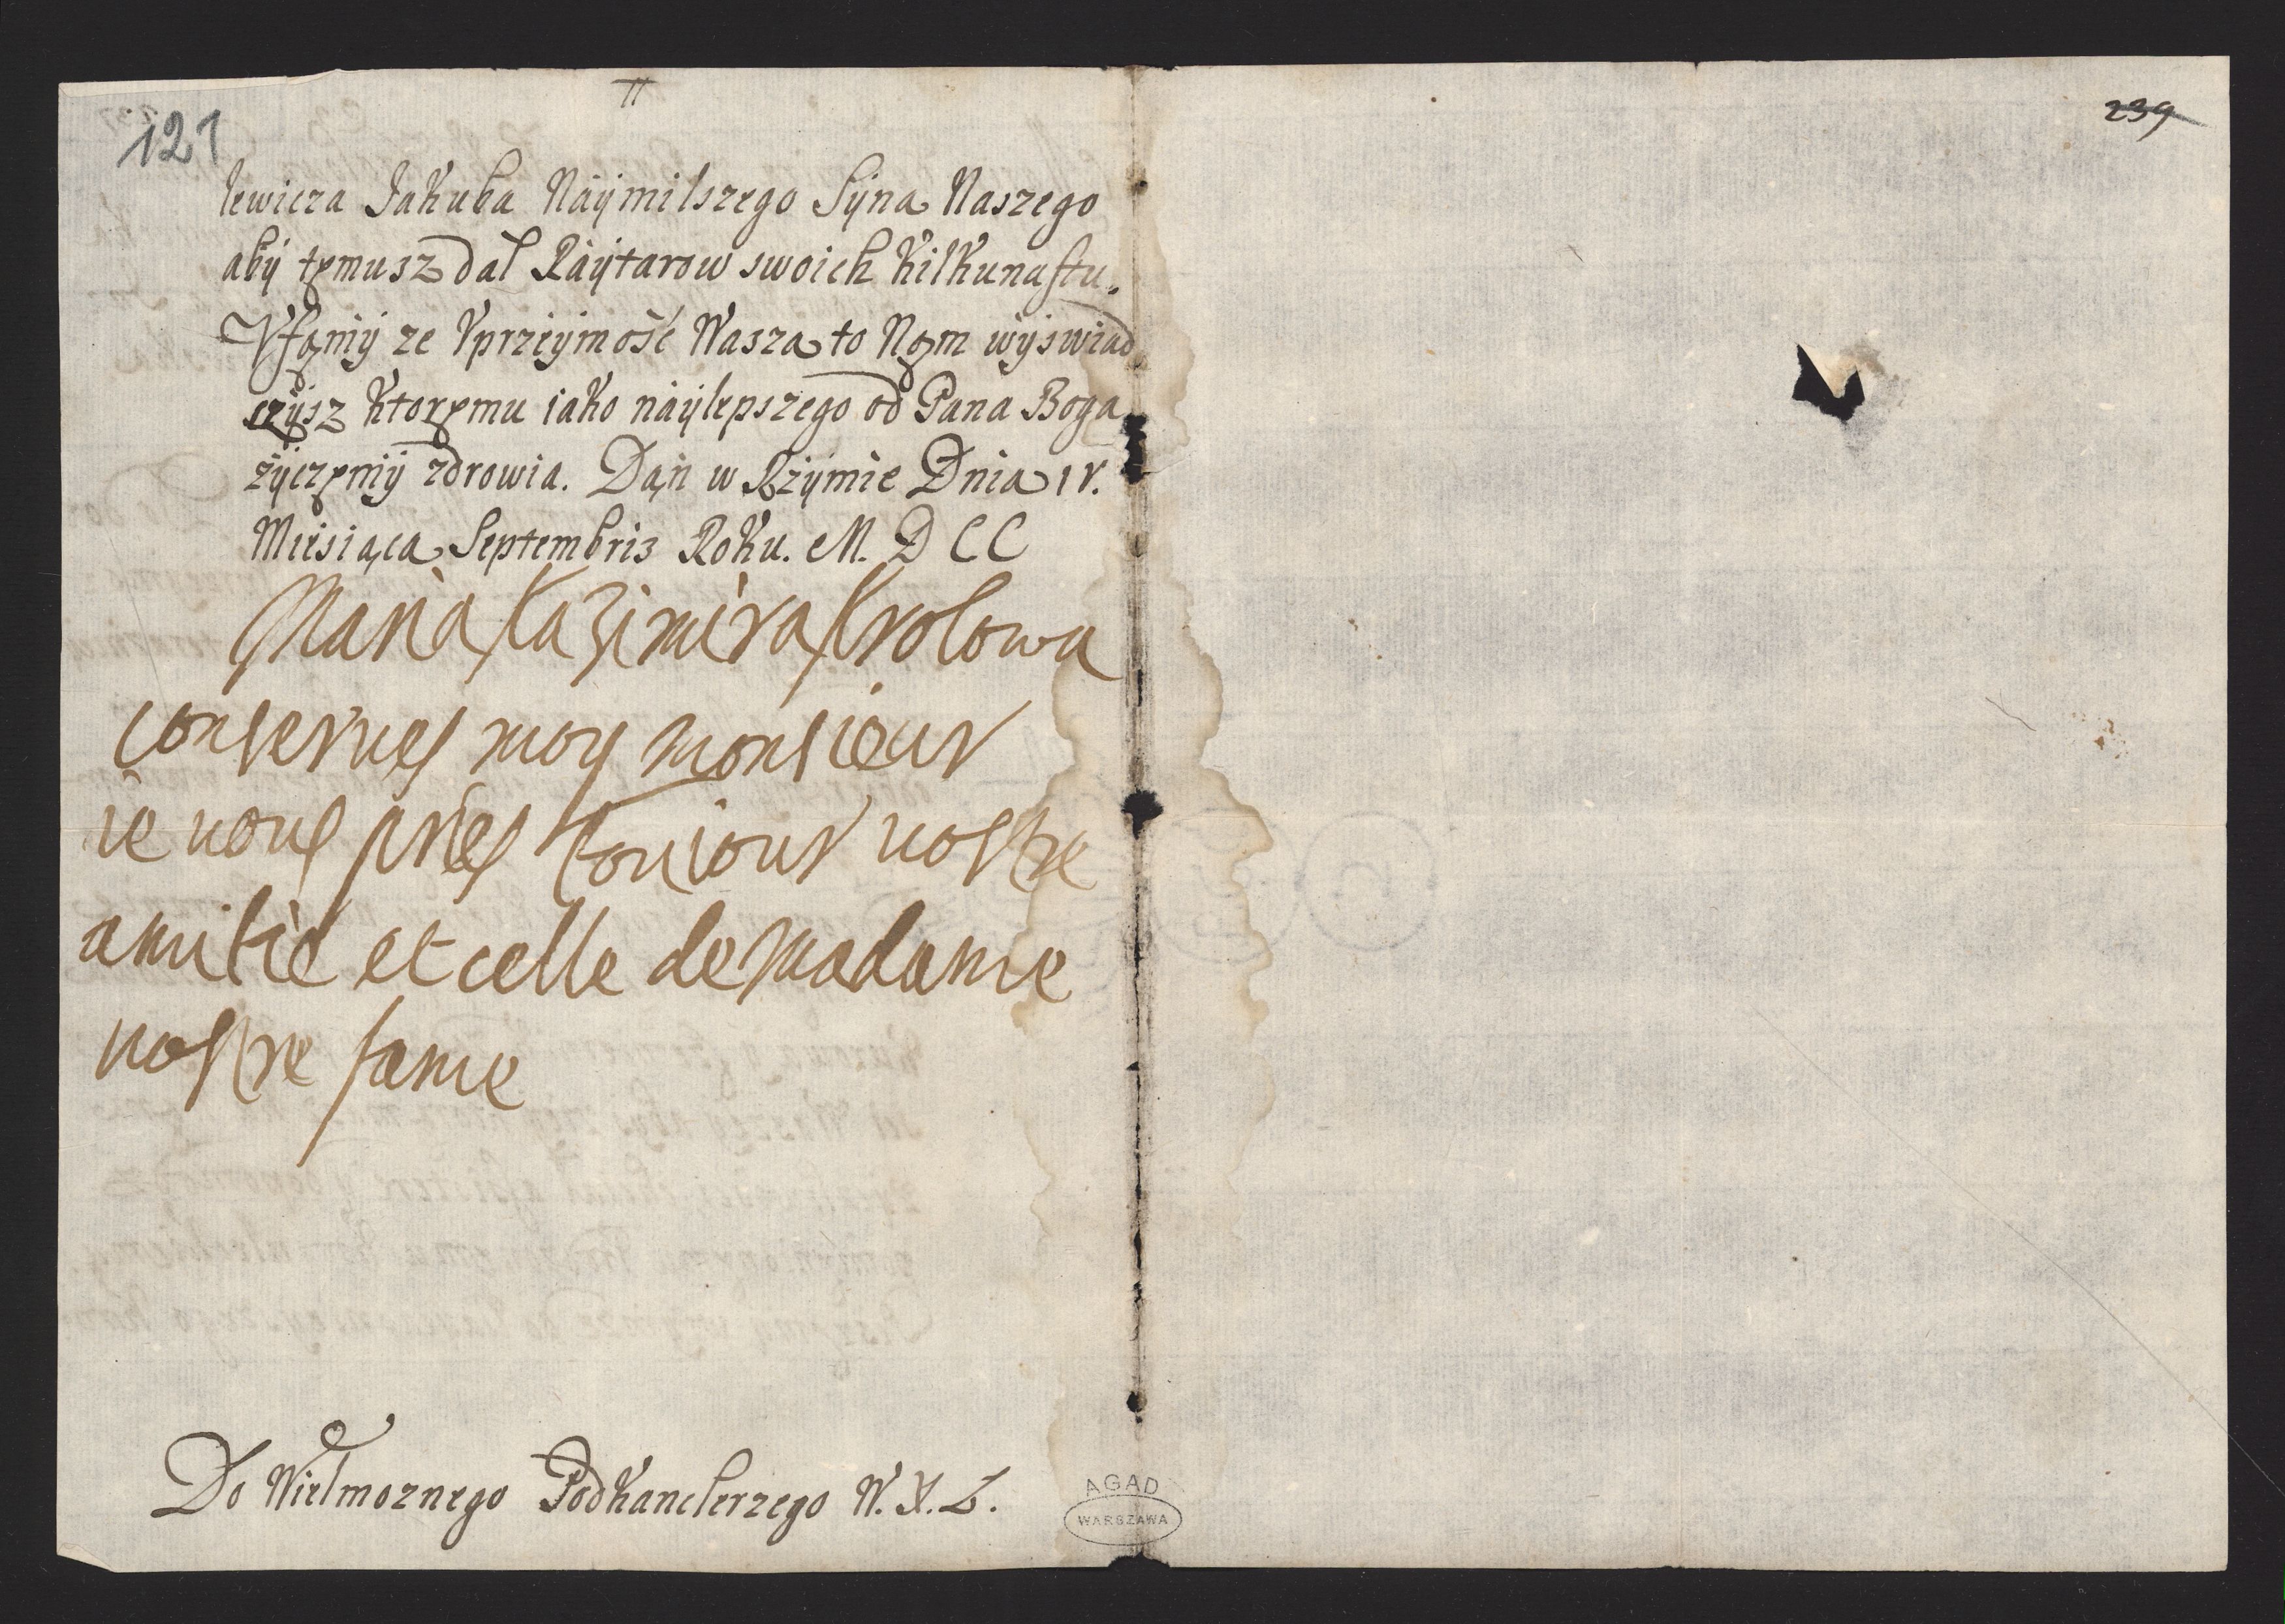 121
lewicza Jakuba Náÿmilszego Sÿna Naszego
abÿ tęmusz dał Ráÿtarow swoich kilkunastu.
Vfąmÿ ze Vprzeÿmość Wasza to Nąm wÿswiad
czÿsz ktoręmu iako náÿlepszego od Pana Boga
zÿczęmÿ zdrowia. Dąn w Rzÿmie Dnia
Miesiąca Septembris Roku. M. D C C
Maria Kazimira Krolowa
conserues moy monsieur
ie uous pries touiour uostre
amitié et celle de madame
uostre fame
Do Wielmoznego Podkanclerzego W. X. L.
AGAD
WARSZAWA
239